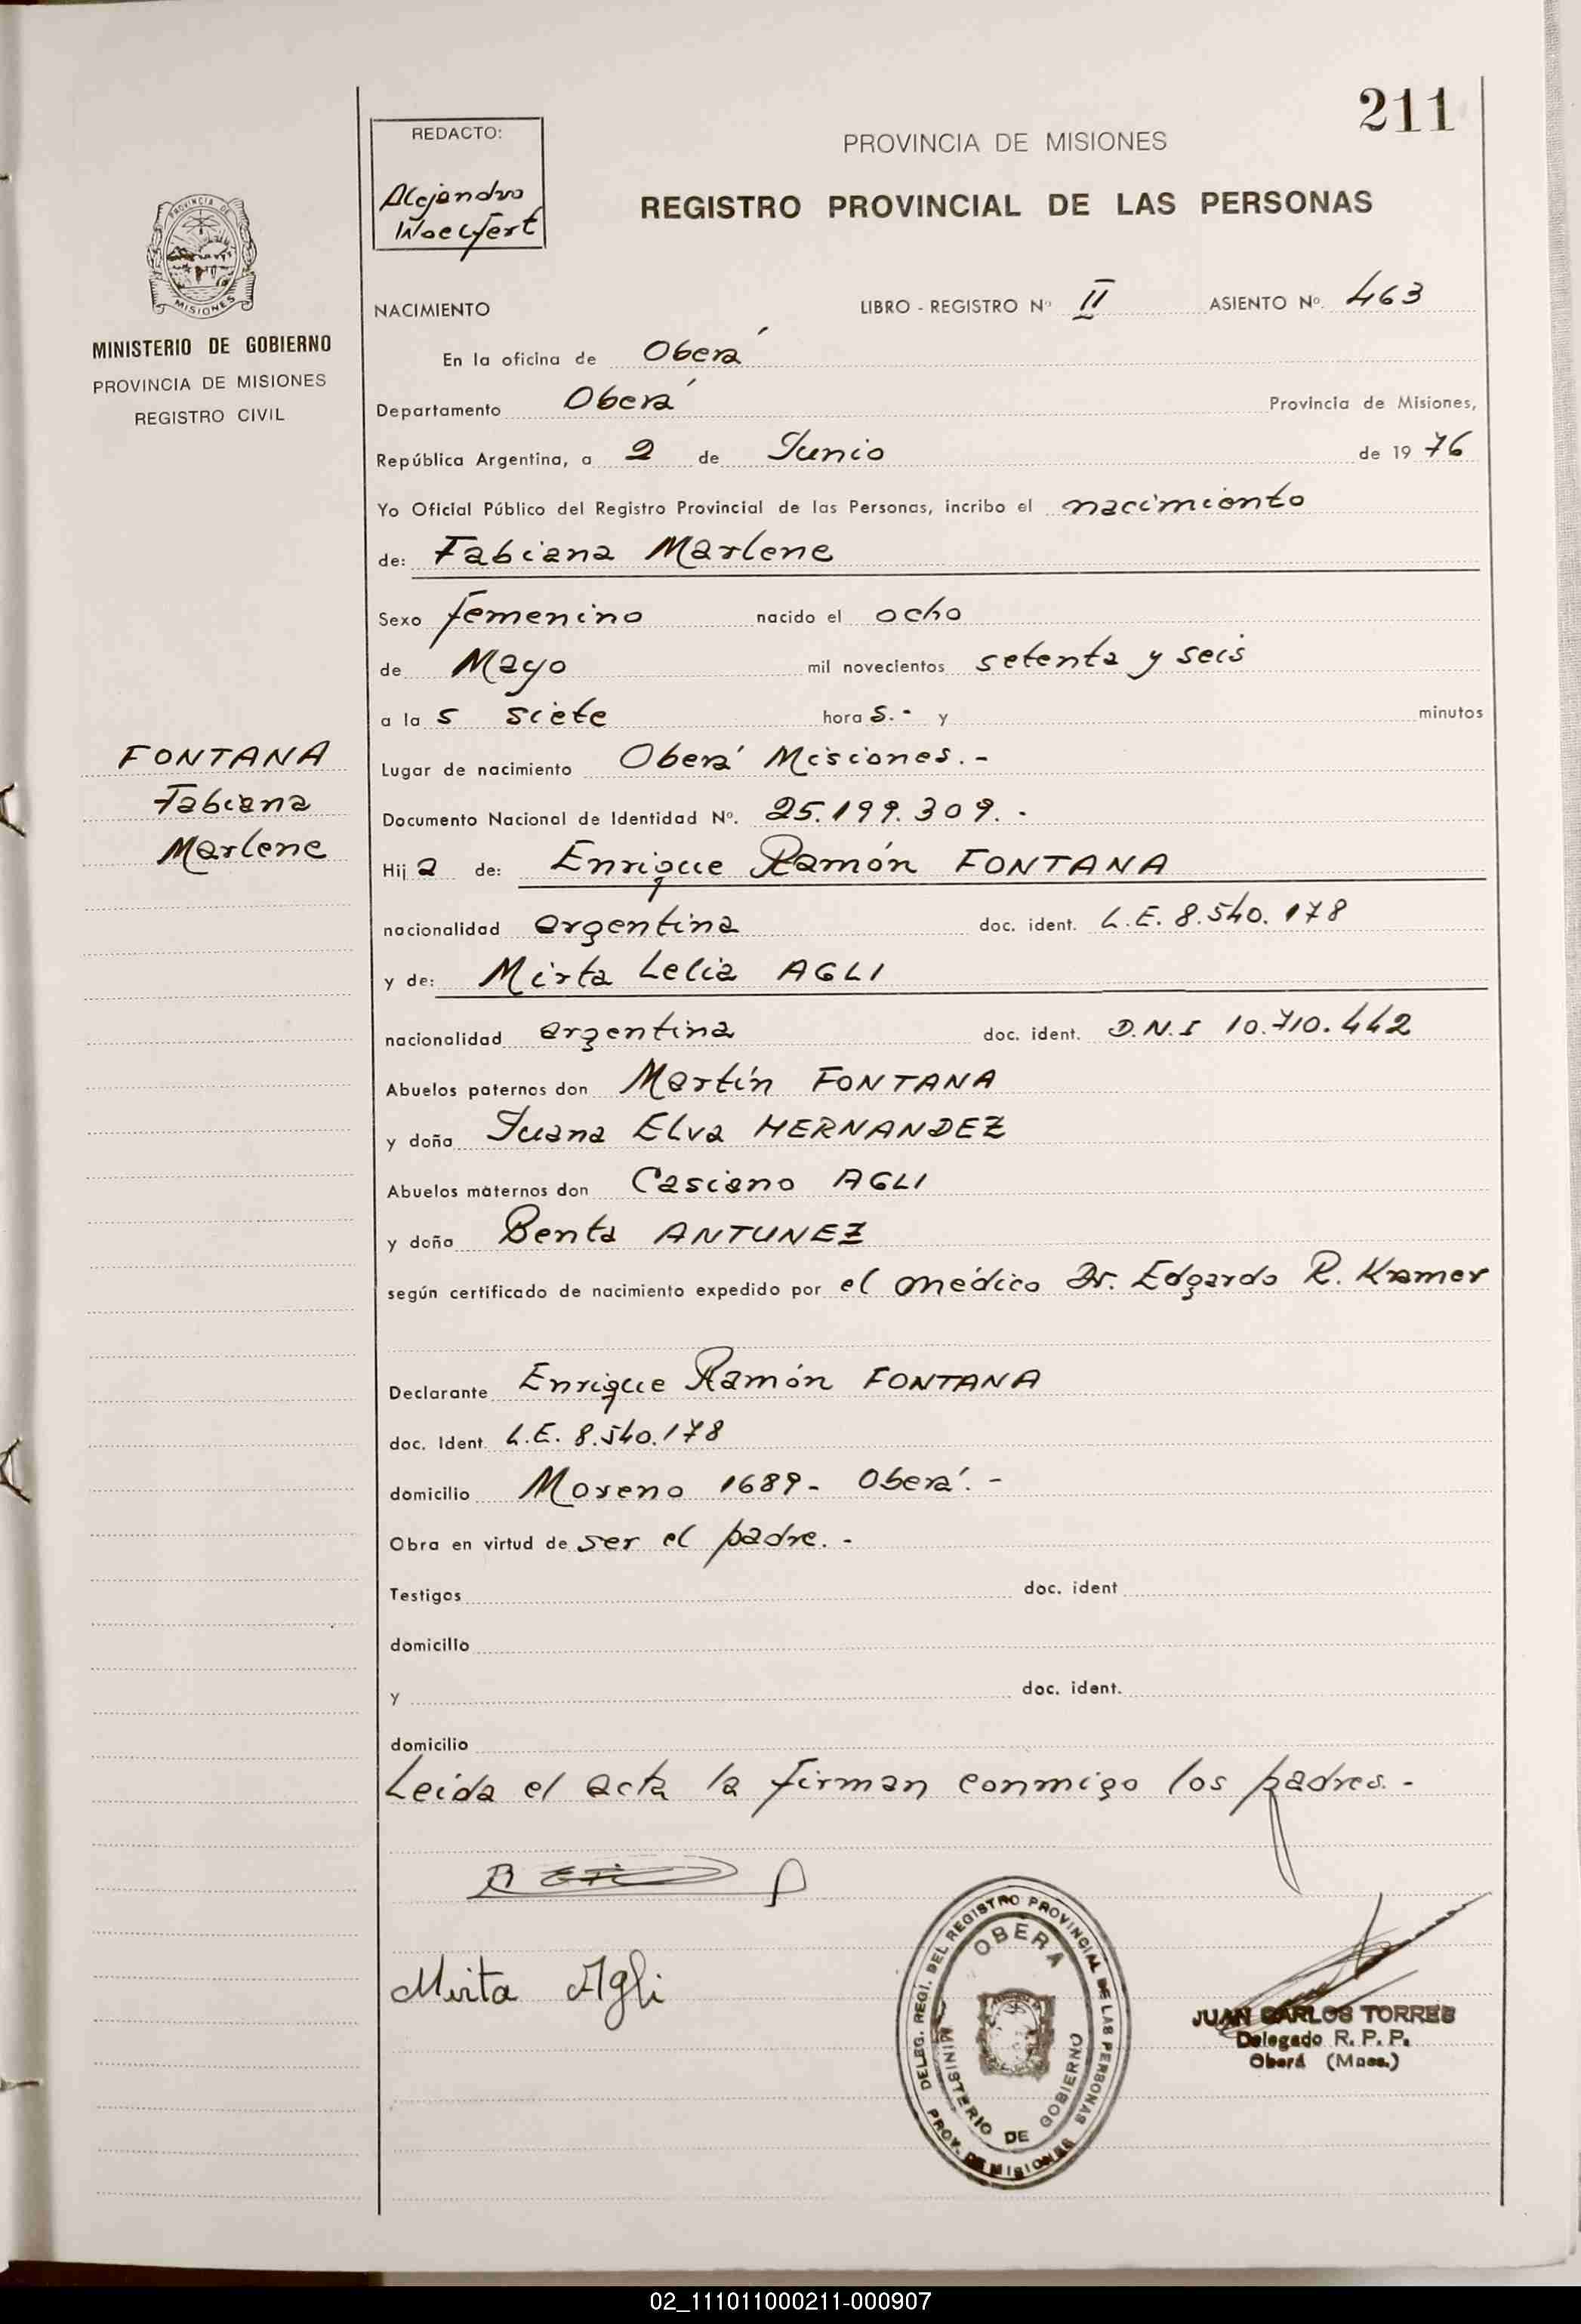 211
REDACTO:
Alejandro
PROVINCIA DE MISIONES
REGISTRO PROVINCIAL DE LAS PERSONAS
PROVINCIA DE
MISIONES
MINISTERIO DE GOBIERNO
PROVINCIA DE MISIONES
REGISTRO CIVIL
NACIMIENTO LIBRO - REGISTRO Nº II ASIENTO Nº. 463
En la oficina de Oberá
Departamento Oberá Provincia de Misiones,
República Argentina, a 2 de Junio de 1976
Yo Oficial Público del Registro Provincial de las Personas, incribo el nacimiento
de: Fabiana Marlene
Sexo femenino nacido el ocho
de Mayo mil novecientos setenta y seis
a la s siete hora s.- y minutos
FONTANA
Fabiana
Marlene
Lugar de nacimiento Oberá Misiones.-
Documento Nacional de Identidad Nº. 25.199.309.-
Hij a de: Enrique Ramón FONTANA
nacionalidad argentina doc. ident. L.E. 8.540.178
y de: Mirta Lelia AGLI
nacionalidad argentina doc. ident. D.N.I 10.710.442
Abuelos paternos don Martín FONTANA
y doña Juana Elva HERNANDEZ
Abuelos maternos don Casiano AGLI
y doña Benta ANTUNEZ
según certificado de nacimiento expedido por el médico Dr. Edgardo R. Kramer
Declarante Enrique Ramón FONTANA
doc. Ident. L.E. 8.540.178
domicilio Moreno 1689- Oberá.-
Obra en virtud de ser el padre.-
Testigos doc. ident
domicilio
y doc. ident.
domicilio
Leida el acta la firman conmigo los padres.-
Mirta Agli
DELEG. REGI. DEL REGISTRO PROVINCIAL DE LAS PERSONAS
OBERA
MINISTERIO DE GOBIERNO
PROV. DE MISIONES
JUAN CARLOS TORRES
Delegado R. P. P.
Oberá (Mnes.)
02_111011000211-000907